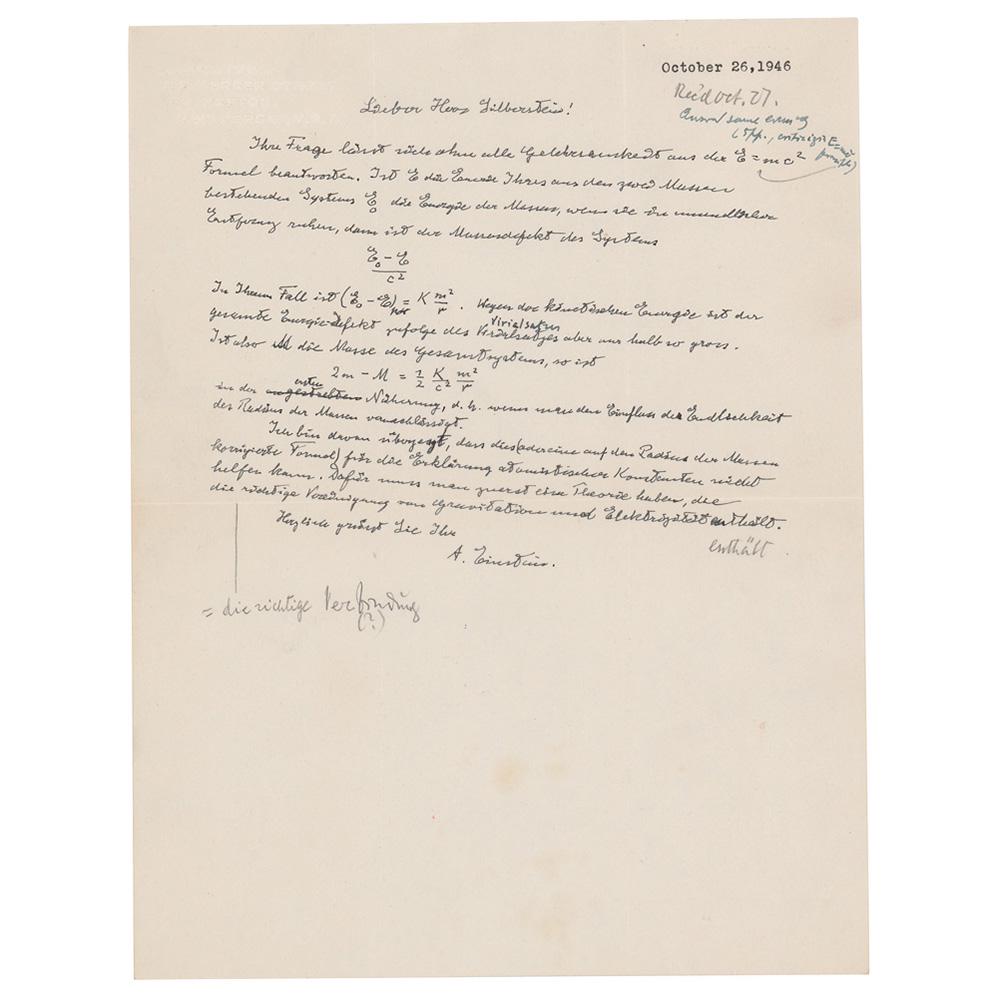 October 26, 1946
Rec'd Oct. 27.
Answ'd same evening
(5 pp., criticizing E=mc²
Lieber Herr Silberstein!
Ihre Frage lässt sich ohne alle Gelehrsamkeit aus der E = mc²
Formel beantworten. Ist E die Energie Ihres aus den zwei Massen
bestehenden Systems E₀ die Energie der Massen, wenn sie in unendlicher
Entfernung ruhen, dann ist der Massendefekt des Systems
E₀ - E
c²
In Ihrem Fall ist (E₀ - E) = K m²/r. Wegen der kinetischen Energie ist der
Virialsatzes
gesamte Energie-Defekt zufolge des Virialsatzes aber nur halb so gross.
Ist also M die Masse des Gesamtsystems, so ist
2m - M = 1/2 K/c² m²/r
ersten
in der Näherung, d. h. wenn man den Einfluss der Endlichkeit
des Radius der Massen vernachlässigt.
Ich bin davon überzeugt, dass dies (oder eine auf den Radius der Massen
korrigierte Formel) für die Erklärung atomistischer Konstanten nicht
helfen kann. Dafür muss man zuerst eine Theorie haben, die
die richtige Vereinigung von Gravitation und Elektrizität enthält.
enthält
Herzlich grüsst Sie Ihr
A. Einstein.
= die richtige Verbindung
(?)